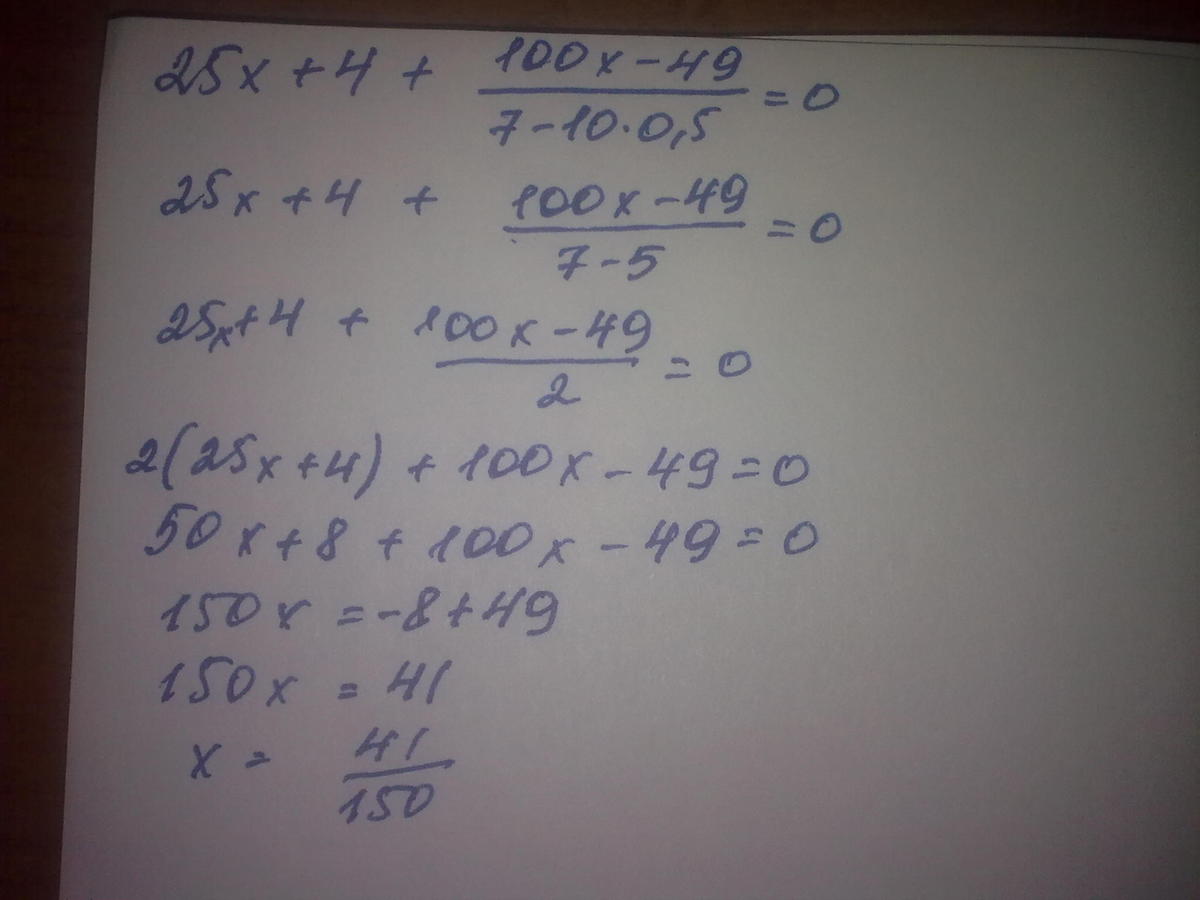 25x + 4 + (100x - 49)/(7 - 10·0,5) = 0
25x + 4 + (100x - 49)/(7 - 5) = 0
25x + 4 + (100x - 49)/2 = 0
2(25x + 4) + 100x - 49 = 0
50x + 8 + 100x - 49 = 0
150x = -8 + 49
150x = 41
x = 41/150